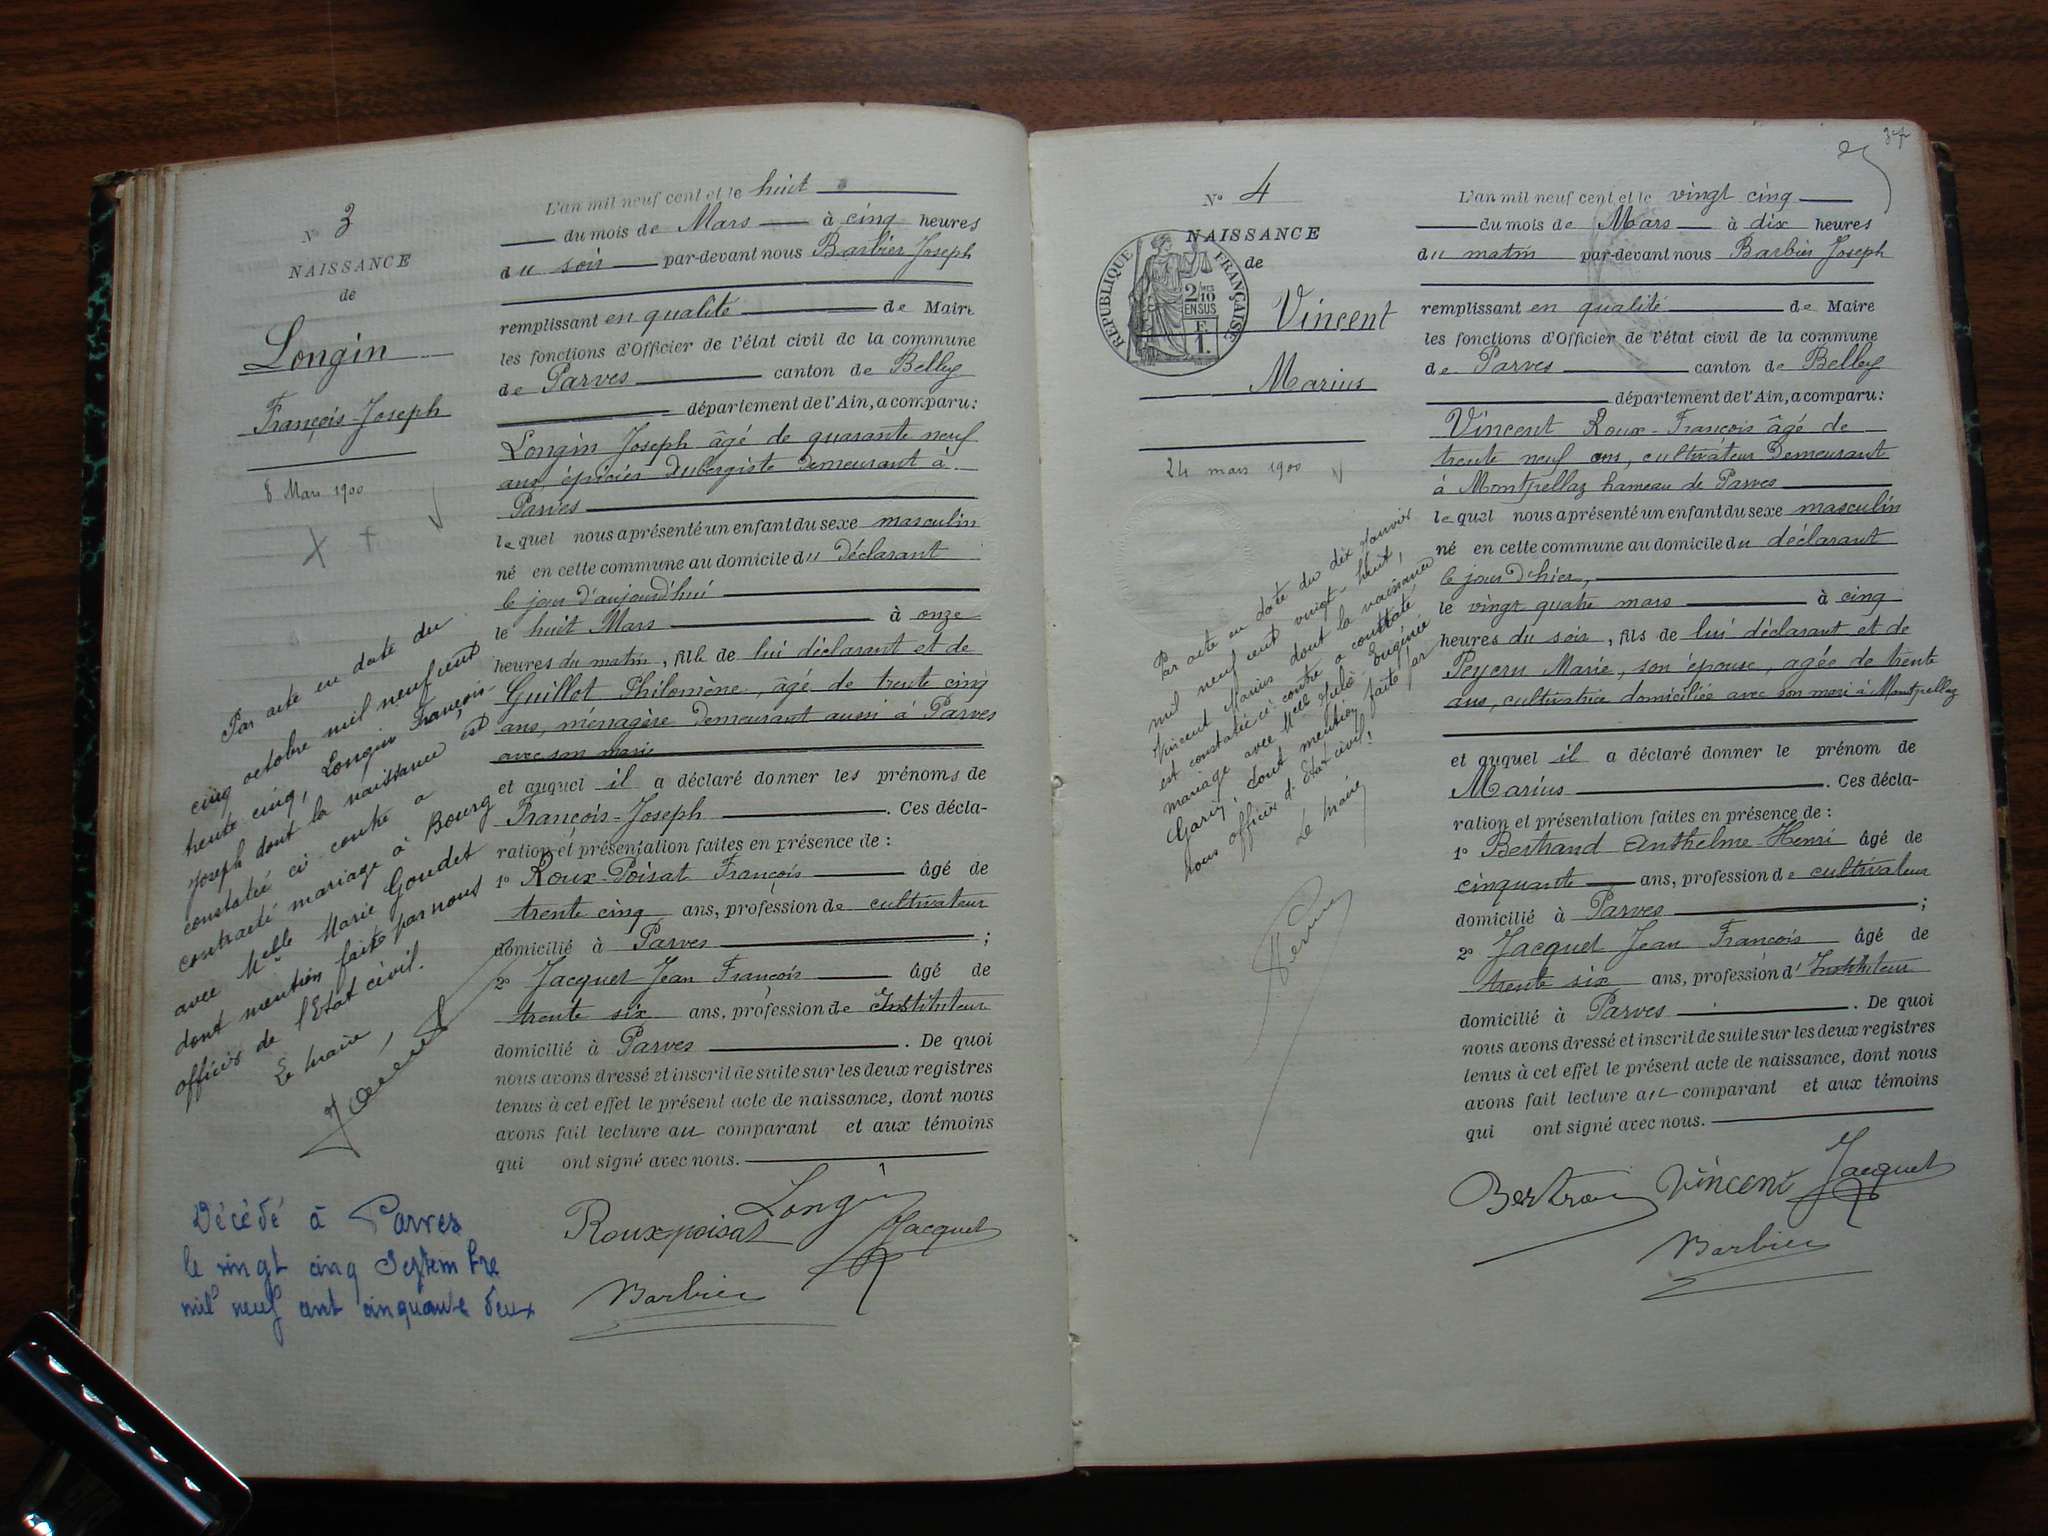 Nº 3
NAISSANCE
de
Longin
François-Joseph
8 Mars 1900
Par acte en date du
cinq octobre mil neuf cent
trente cinq, Longin François-
Joseph dont la naissance est
constatée ci contre a
contracté mariage à Bourg
avec Melle Marie Goudet
dont mention faite par nous
officier de l'Etat civil.
Le Maire,
Décédé à Parves
le vingt cinq Septembre
mil neuf cent cinquante deux
L'an mil neuf cent et le huit
du mois de Mars à cinq heures
du soir par-devant nous Barbier Joseph
remplissant en qualité de Maire
les fonctions d'Officier de l'état civil de la commune
de Parves canton de Belley
département de l'Ain, a comparu:
Longin Joseph âgé de quarante neuf
ans, épicier aubergiste demeurant à
Parves
lequel nous a présenté un enfant du sexe masculin
né en cette commune au domicile du déclarant
le jour d'aujourd'hui
le huit Mars à onze
heures du matin, fils de lui déclarant et de
Guillot Philomène, âgé de trente cinq
ans, ménagère demeurant aussi à Parves
avec son mari
et auquel il a déclaré donner les prénoms de
François-Joseph. Ces décla-
ration et présentation faites en présence de :
1º Roux-Poisat François âgé de
trente cinq ans, profession de cultivateur
domicilié à Parves ;
2º Jacquet Jean François âgé de
trente six ans, profession de Instituteur
domicilié à Parves. De quoi
nous avons dressé et inscrit de suite sur les deux registres
tenus à cet effet le présent acte de naissance, dont nous
avons fait lecture au comparant et aux témoins
qui ont signé avec nous.
Longin
Roux-poisat Jacquet
Barbier
37
Nº 4
NAISSANCE
de
REPUBLIQUE FRANÇAISE
2/10
EN SUS
Vincent
Marius
24 mars 1900
Par acte en date du dix Janvier
mil neuf cent vingt-huit,
Vincent Marius dont la naissance
est constatée ci contre a contracté
mariage avec Melle Julie Eugénie
Garin, dont mention faite par
nous officier d'Etat civil.
Le Maire
L'an mil neuf cent et le vingt cinq
du mois de Mars à dix heures
du matin par-devant nous Barbier Joseph
remplissant en qualité de Maire
les fonctions d'Officier de l'état civil de la commune
de Parves canton de Belley
département de l'Ain, a comparu:
Vincent Roux-François âgé de
trente neuf ans, cultivateur demeurant
à Montpellaz hameau de Parves
lequel nous a présenté un enfant du sexe masculin
né en cette commune au domicile du déclarant
le jour d'hier,
le vingt quatre mars à cinq
heures du soir, fils de lui déclarant et de
Peycru Marie, son épouse, agée de trente
ans, cultivatrice domiciliée avec son mari à Montpellaz
et auquel il a déclaré donner le prénom de
Marius. Ces décla-
ration et présentation faites en présence de :
1º Bertrand Anthelme-Henri âgé de
cinquante ans, profession de cultivateur
domicilié à Parves ;
2º Jacquet Jean François âgé de
trente six ans, profession d'Instituteur
domicilié à Parves. De quoi
nous avons dressé et inscrit de suite sur les deux registres
tenus à cet effet le présent acte de naissance, dont nous
avons fait lecture au comparant et aux témoins
qui ont signé avec nous.
Bertrand Vincent Jacquet
Barbier